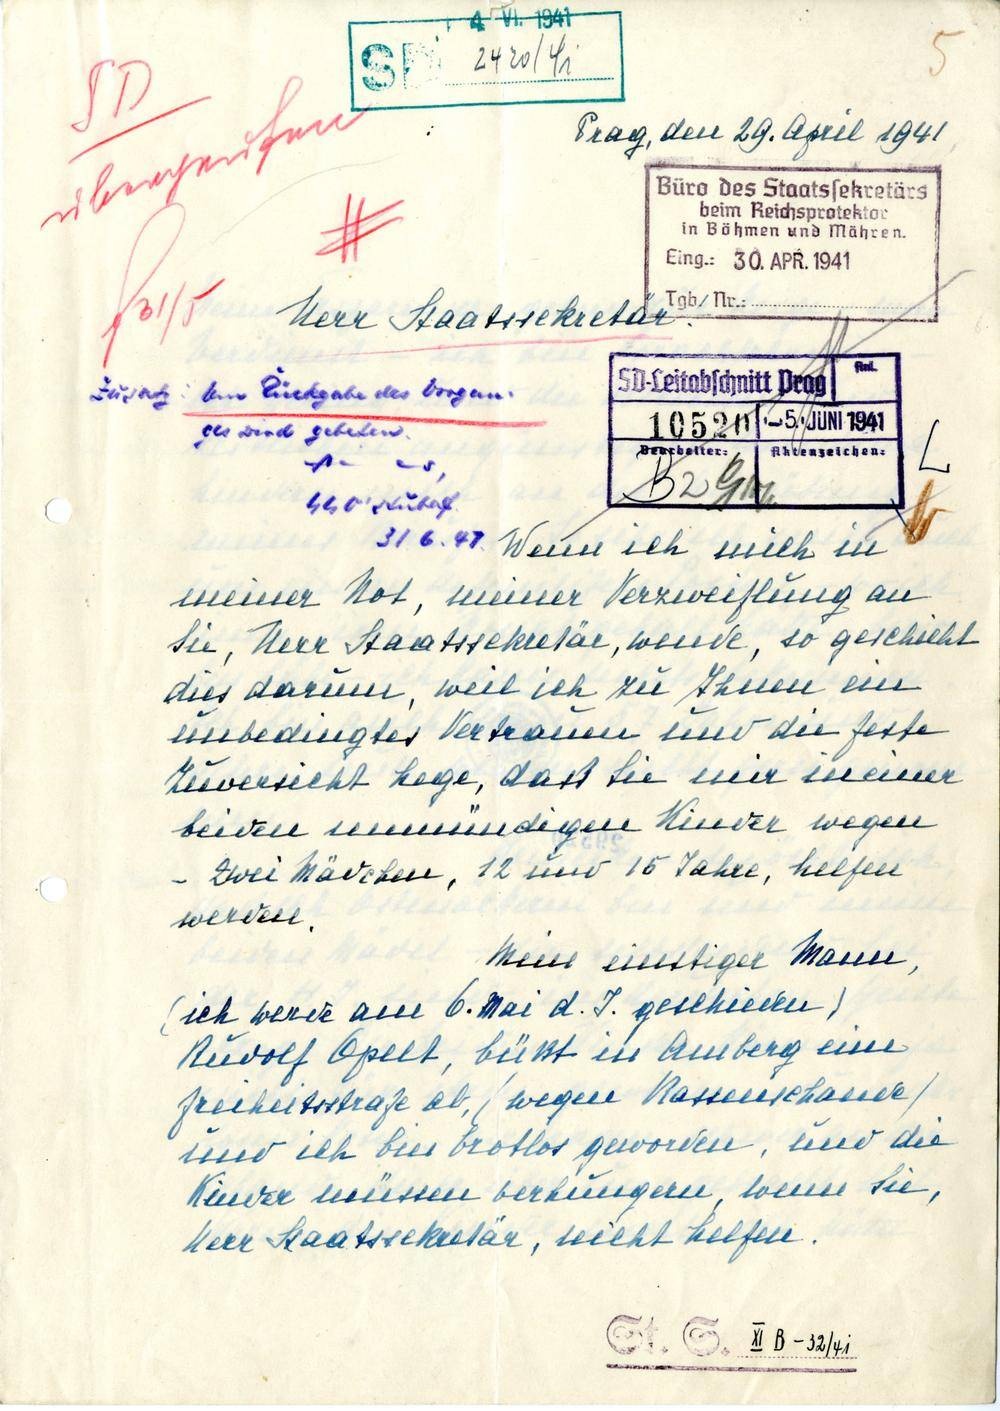 4. VI. 1941
SD 2420/41
5
SD
übergeben
Prag, den 29. April 1941
Büro des Staatssekretärs
beim Reichsprotektor
in Böhmen und Mähren.
Eing.: 30. APR. 1941
Tgb/Nr.:
31/5
Herr Staatssekretär.
SD-Leitabschnitt Prag
Anl.
10520
-5. JUNI 1941
Bearbeiter:
Aktenzeichen:
B2
Zusatz: Um Rückgabe des Vorgan-
ges wird gebeten.
Wenn ich mich in
meiner Not, meiner Verzweiflung an
Sie, Herr Staatssekretär, wende, so geschieht
dies darum, weil ich zu Ihnen ein
unbedingtes Vertrauen und die feste
Zuversicht hege, daß Sie mir meiner
beiden unmündigen Kinder wegen
- Zwei Mädchen, 12 und 15 Jahre, helfen
werden.
Mein einstiger Mann,
(ich werde am 6. Mai d. J. geschieden)
Rudolf Opelt, büßt in Amberg eine
Freiheitsstrafe ab, (wegen Rassenschande)
und ich bin brotlos geworden, und die
Kinder müssen verhungern, wenn Sie,
Herr Staatssekretär, nicht helfen.
St. S. XI B - 32/41